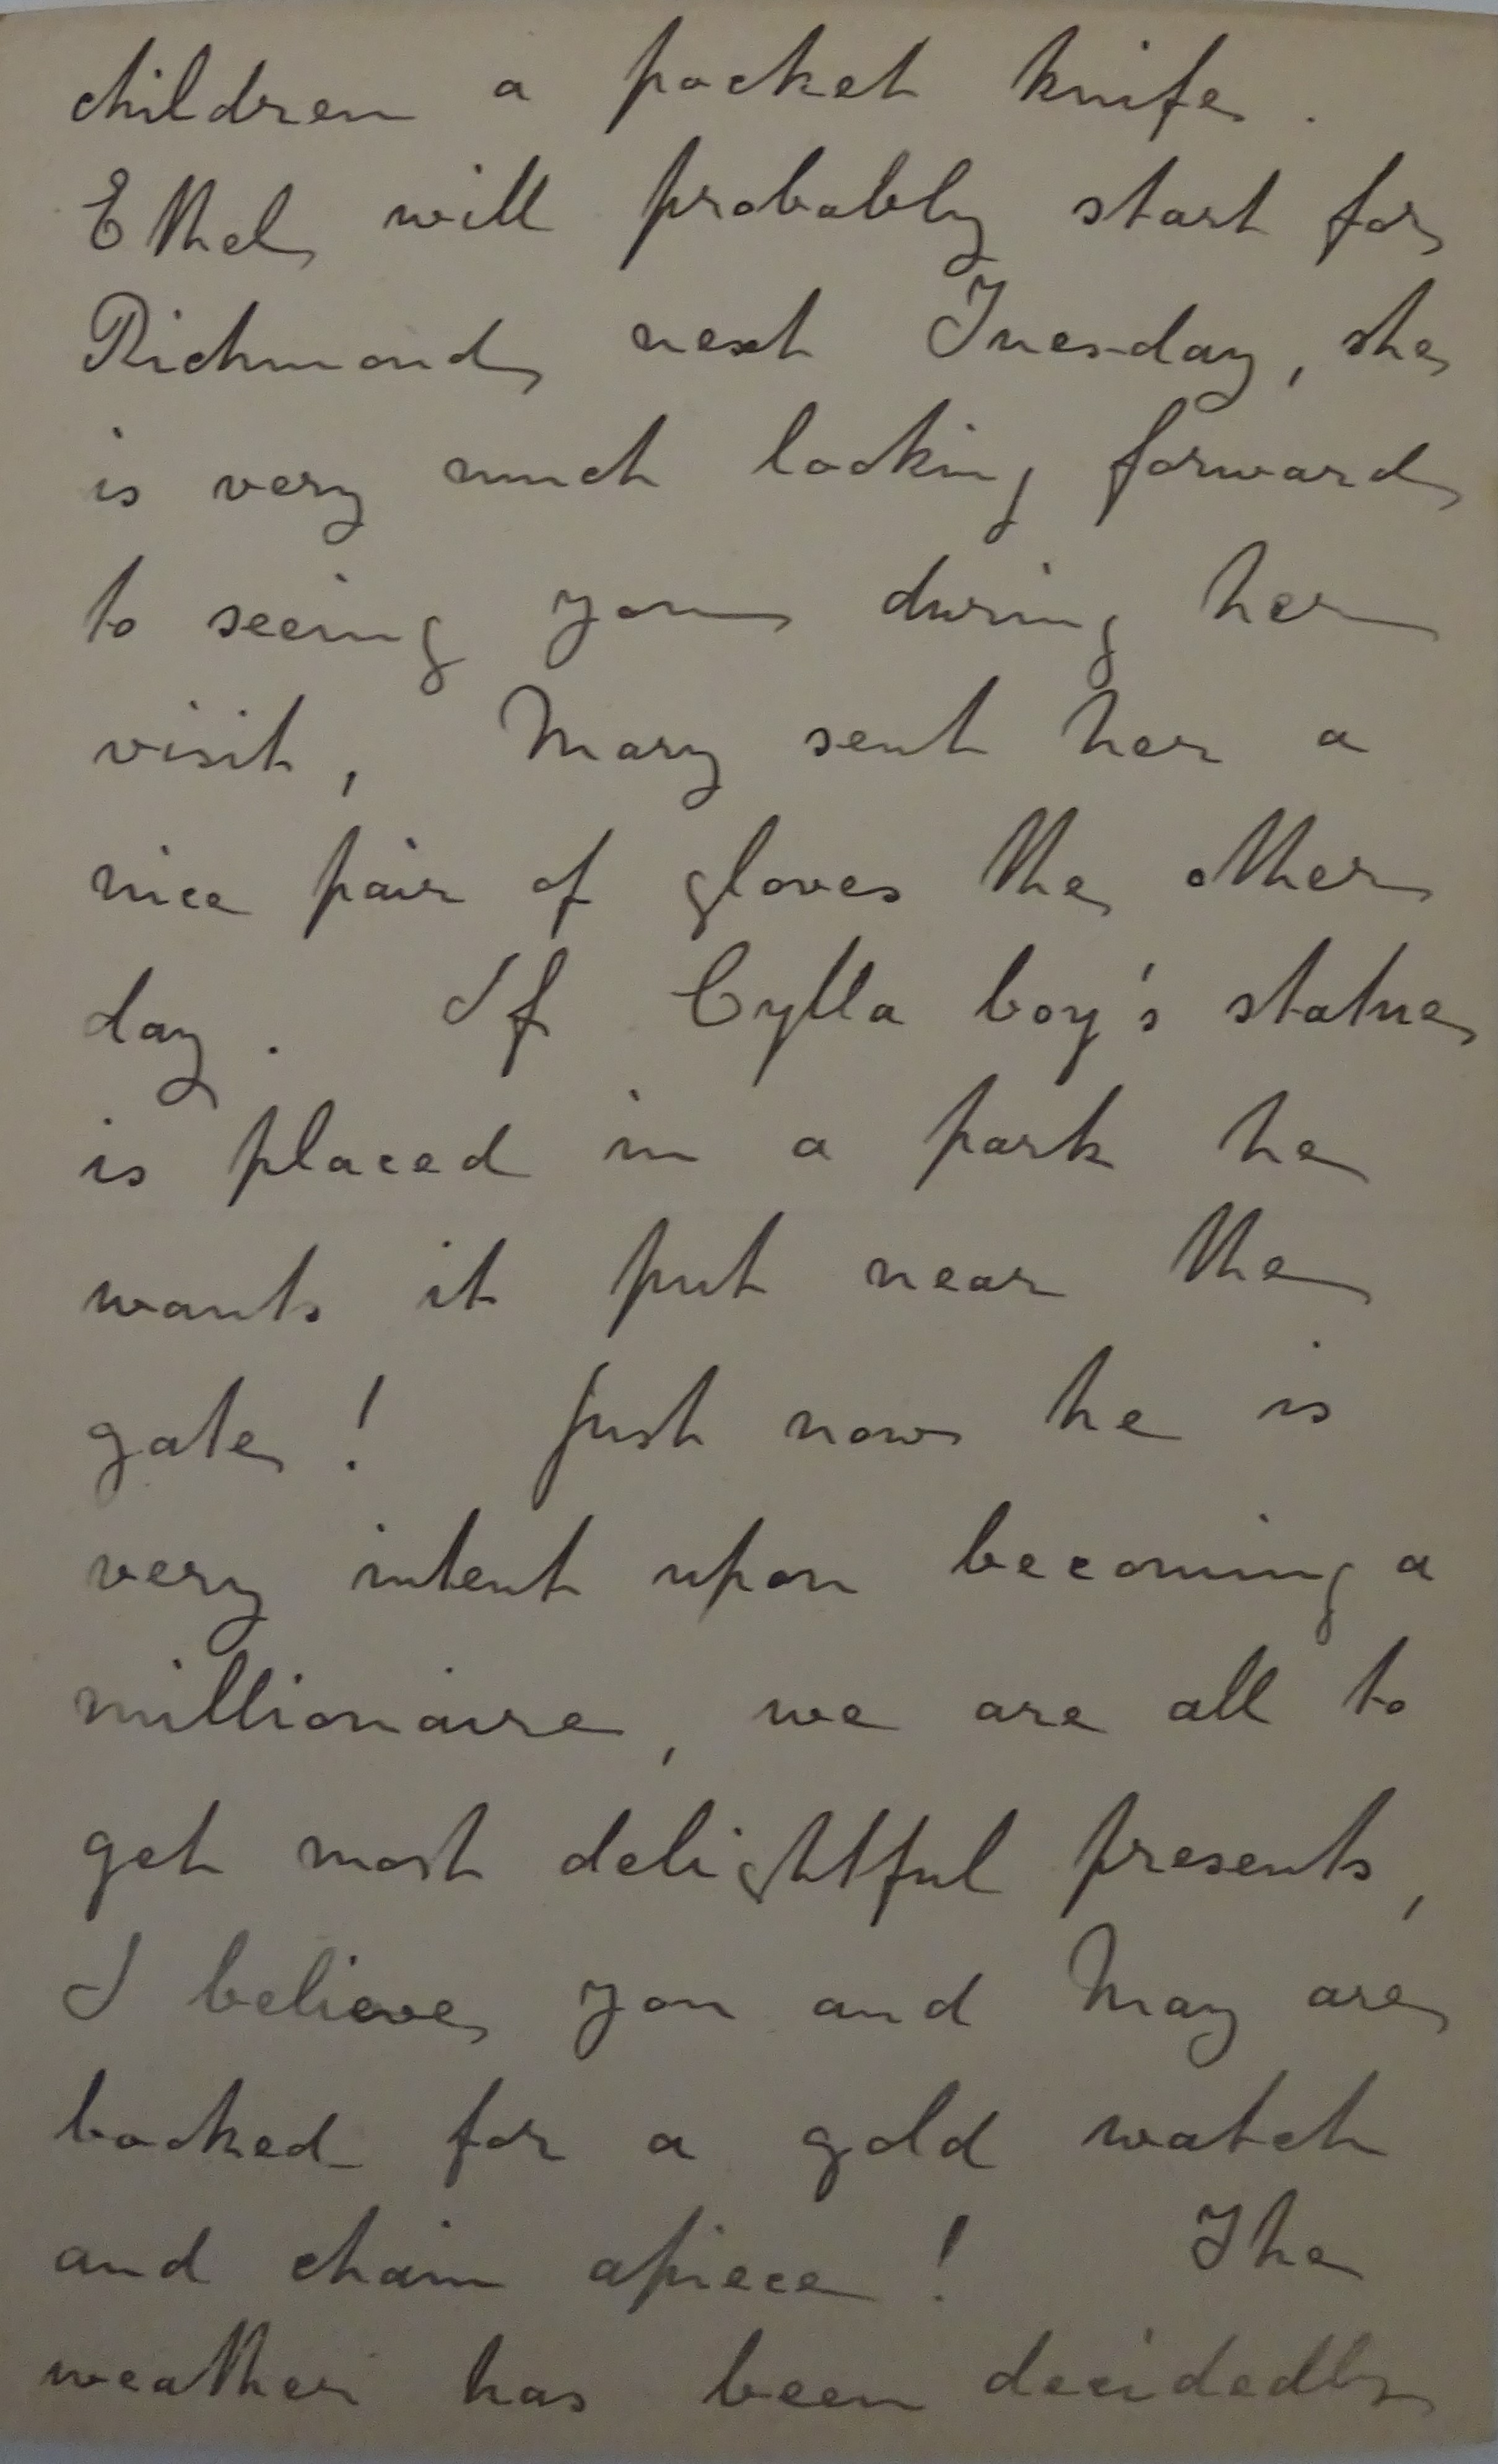 children a pocket knife.
Ethel will probably start for
Richmond next Tuesday, she
is very much looking forward
to seeing you during her
visit, Mary sent her a
nice pair of gloves the other
day. If Cylla boy's statue
is placed in a park he
wants it put near the
gate! Just now he is
very intent upon becoming a
millionaire, we are all to
get most delightful presents,
I believe you and May are
booked for a gold watch
and chain apiece! The
weather has been decidedly